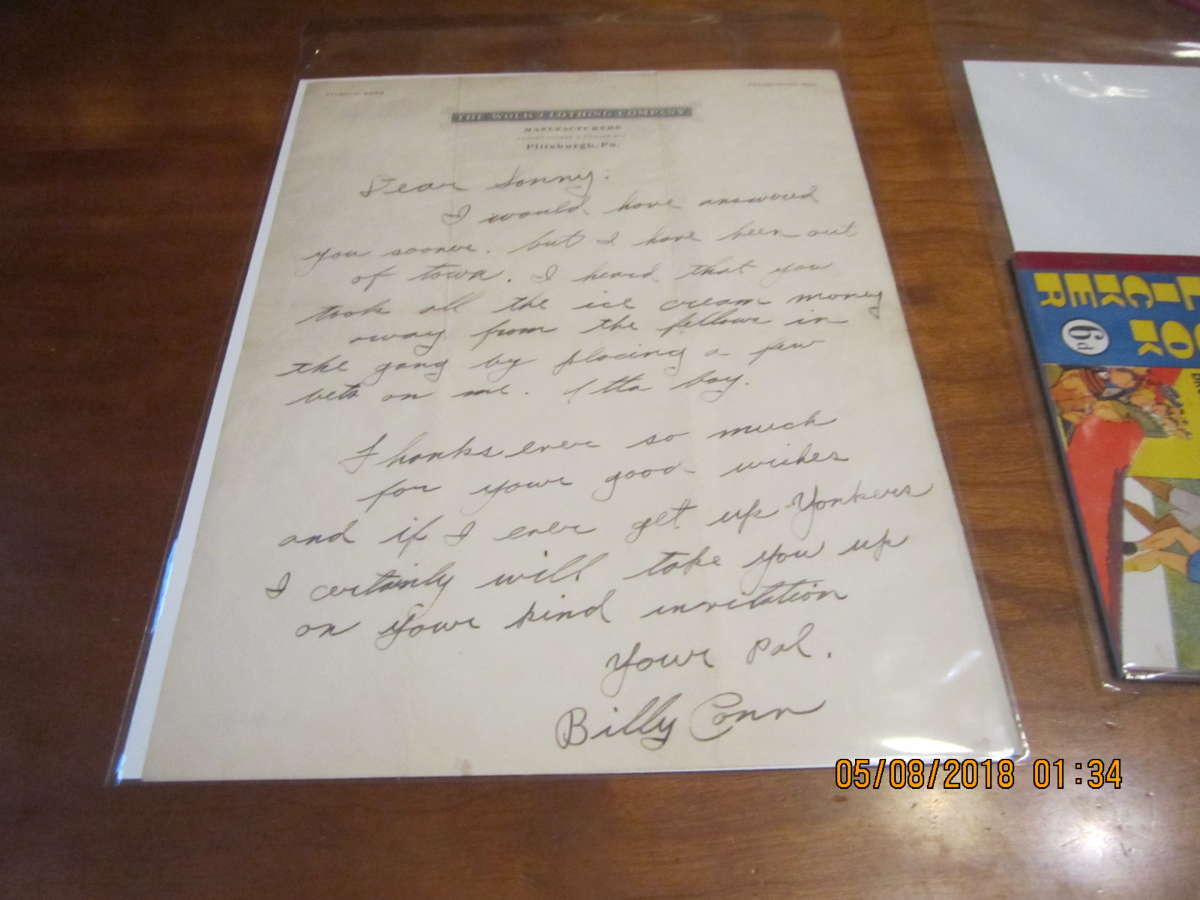 THE WOLK CLOTHING COMPANY
MANUFACTURERS
Pittsburgh, Pa.
Dear Sonny:
I would have answered
you sooner. but I have been out
of town. I heard that you
took all the ice cream money
away from the fellows in
the gang by placing a few
bets on me. Atta boy.
Thanks ever so much
for your good wishes
and if I ever get up Yonkers
I certainly will take you up
on your kind invitation
Your Pal.
Billy Conn
OK
ICKER
6d
05/08/2018 01:34